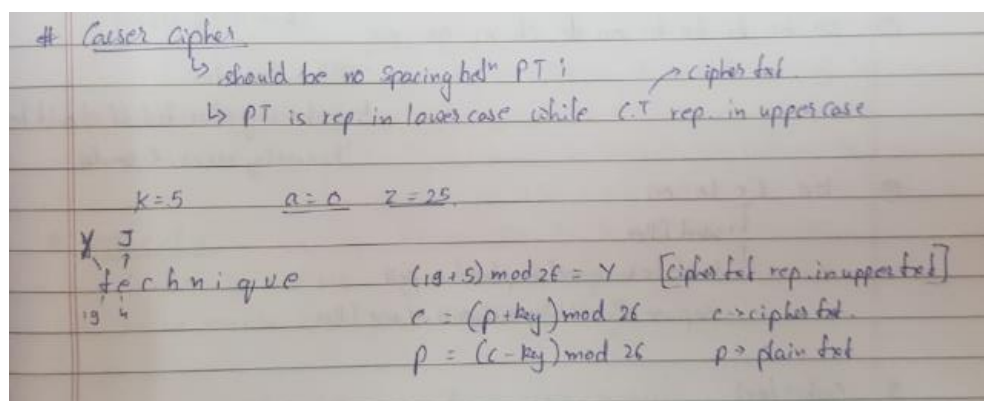 # Caeser Cipher
↳ should be no spacing betⁿ PT ;
→ cipher txt.
↳ PT is rep in lower case while C.T rep. in uppercase
K = 5 a = 0 Z = 25.
Y J
technique (19+5) mod 26 = Y [cipher txt rep. in upper txt]
19 4 c = (p + key) mod 26 c → cipher txt.
p = (c - key) mod 26 p → plain txt